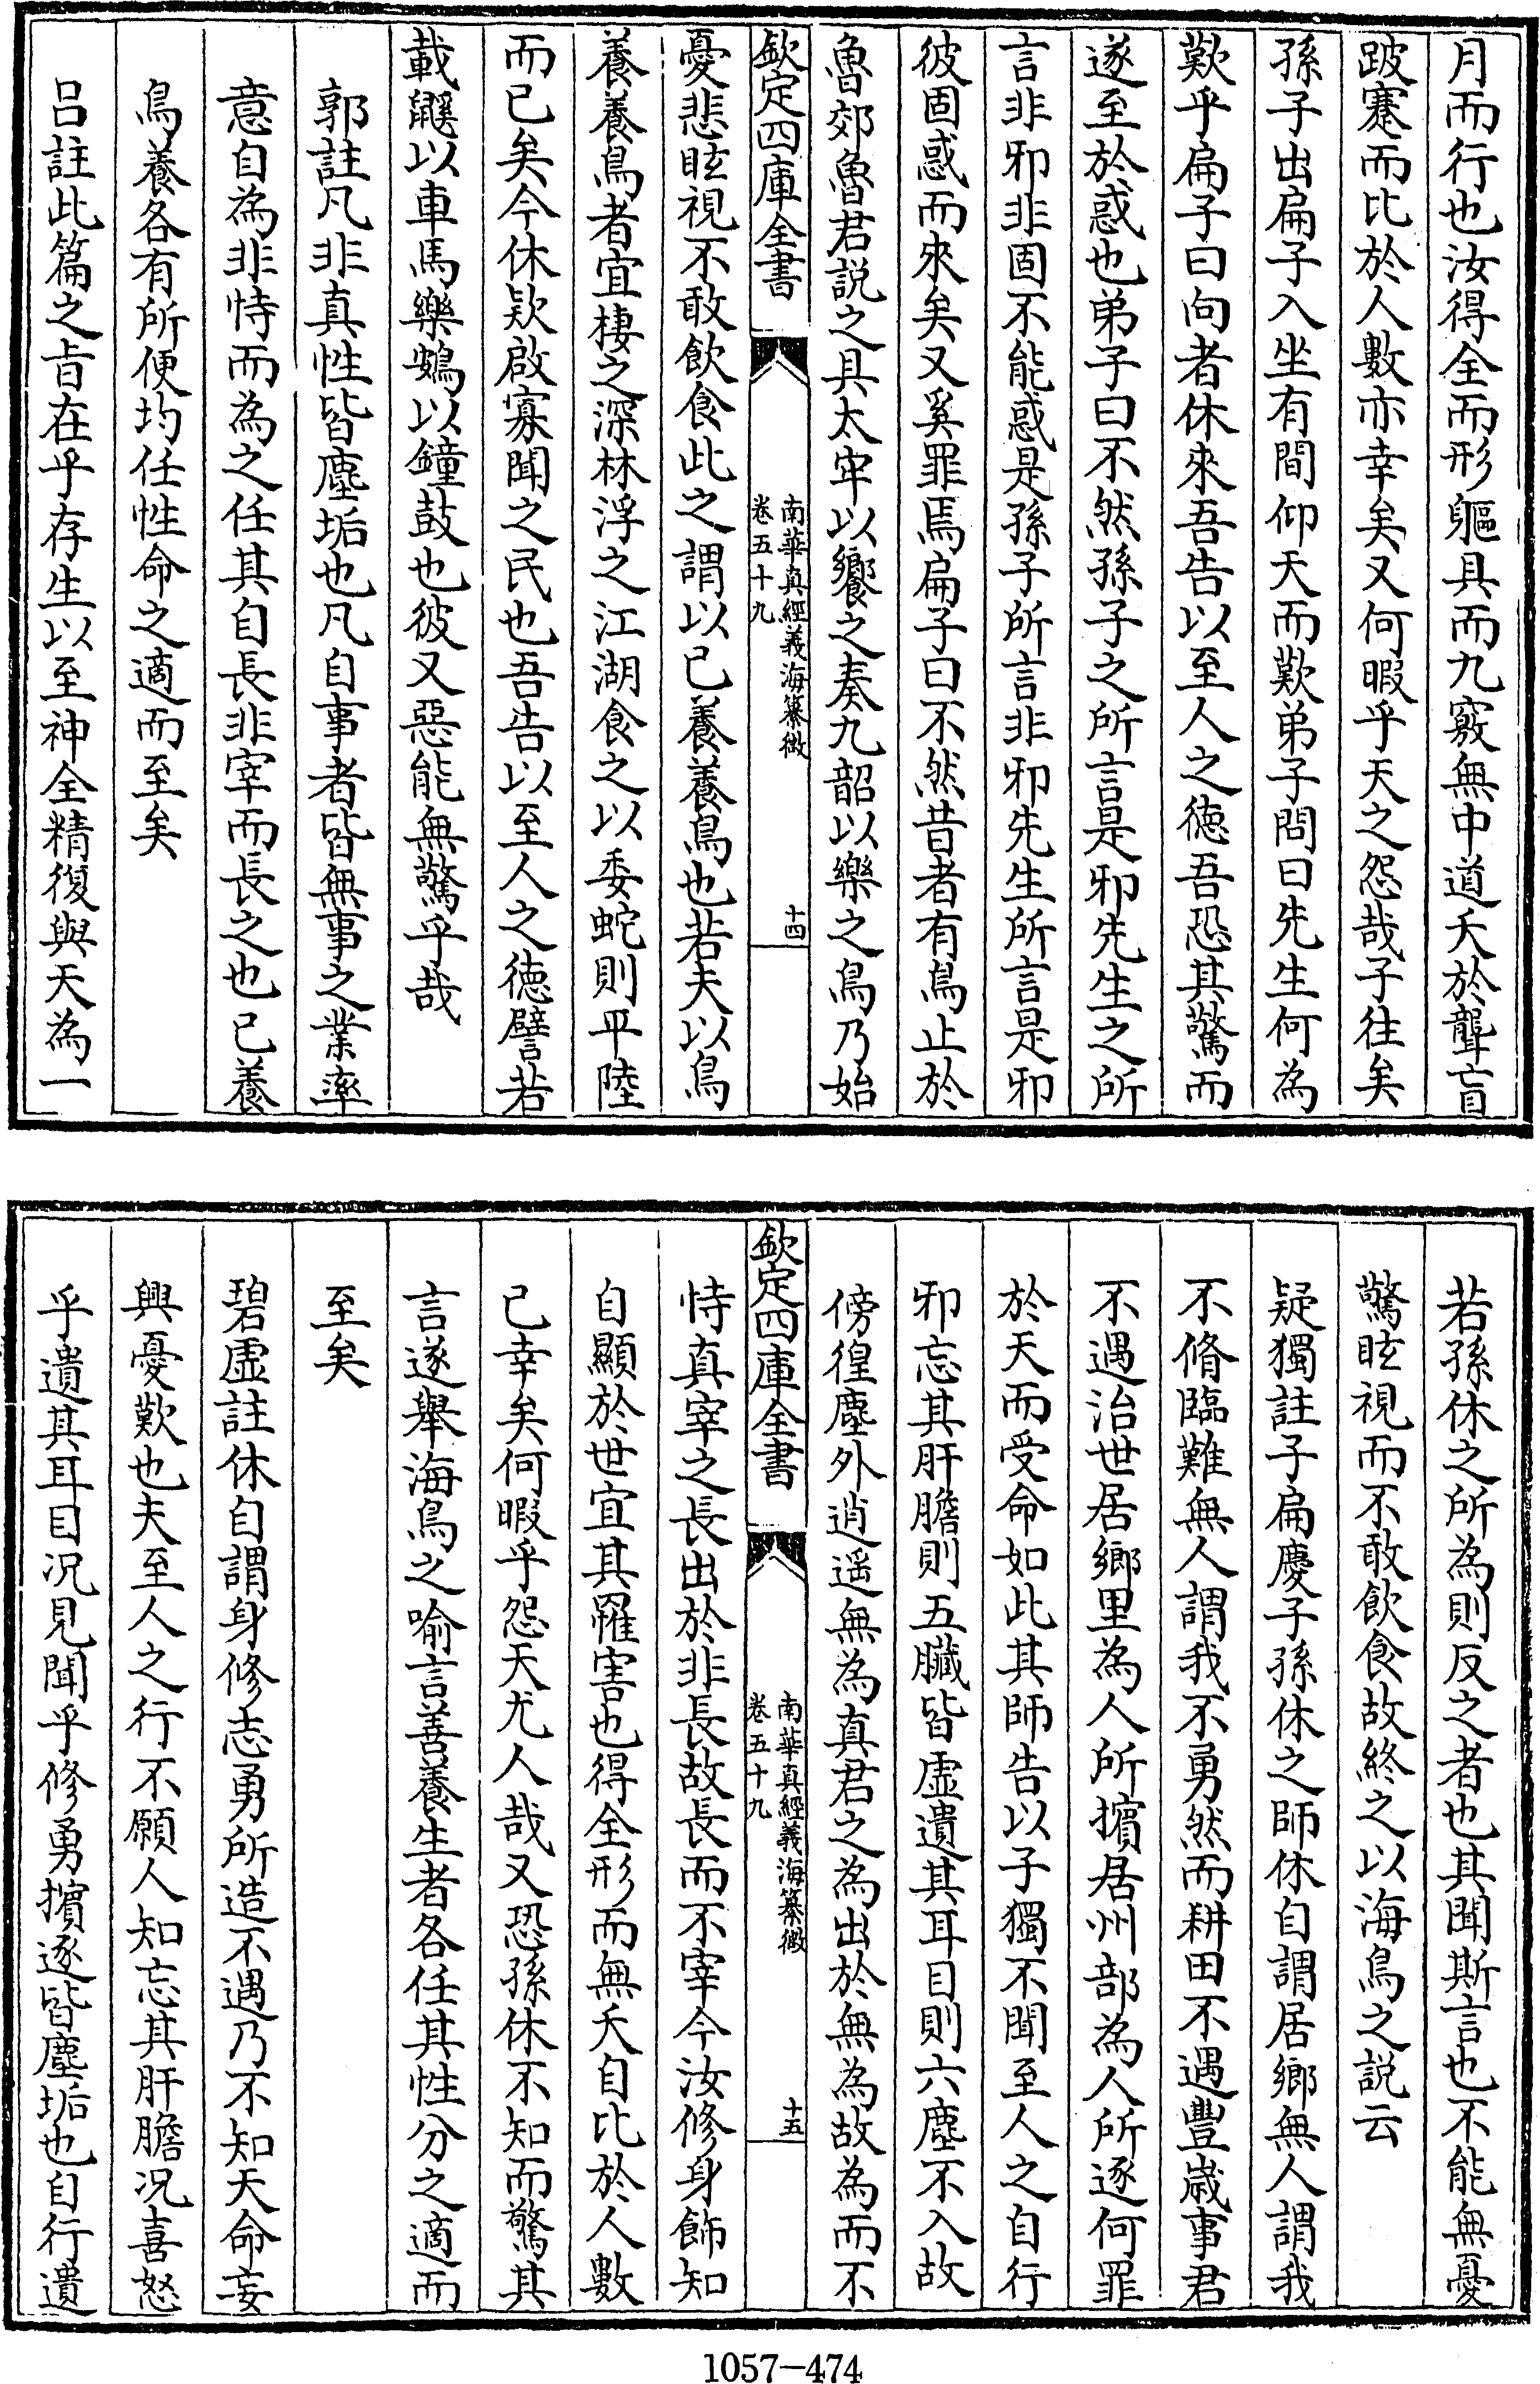 月而行也汝得全而形軀具而九竅無中道夭於聾盲
跛蹇而比於人數亦幸矣又何暇乎天之怨哉子往矣
孫子出扁子入坐有間仰天而歎弟子問曰先生何為
歎乎扁子曰向者休來吾告以至人之徳吾恐其驚而
遂至於惑也弟子曰不然孫子之所言是邪先生之所
言非邪非固不能惑是孫子所言非邪先生所言是邪
彼固惑而來矣又奚罪焉扁子曰不然昔者有鳥止於
魯郊魯君説之具太牢以饗之奏九韶以樂之鳥乃始
欽定四庫全書
南華真經義海纂微
卷五十九
十四
憂悲眩視不敢飲食此之謂以已養養鳥也若夫以鳥
養養鳥者宜棲之深林浮之江湖食之以委蛇則平陸
而已矣今休欵啟寡聞之民也吾告以至人之徳譬若
載鼷以車馬樂鴳以鐘鼓也彼又惡能無驚乎哉
郭註凡非真性皆塵垢也凡自事者皆無事之業率
意自為非恃而為之任其自長非宰而長之也已養
鳥養各有所便均任性命之適而至矣
呂註此篇之㫖在乎存生以至神全精復與天為一
若孫休之所為則反之者也其聞斯言也不能無憂
驚眩視而不敢飲食故終之以海鳥之説云
疑獨註子扁慶子孫休之師休自謂居鄉無人謂我
不脩臨難無人謂我不勇然而耕田不遇豐嵗事君
不遇治世居鄉里為人所擯居州部為人所逐何罪
於天而受命如此其師告以子獨不聞至人之自行
邪忘其肝膽則五臓皆虛遺其耳目則六塵不入故
傍徨塵外逍遥無為真君之為出於無為故為而不
欽定四庫全書
南華真經義海纂微
卷五十九
十五
恃真宰之長出於非長故長而不宰今汝修身飾知
自顯於世宜其罹害也得全形而無夭自比於人數
已幸矣何暇乎怨天尤人哉又恐孫休不知而驚其
言遂舉海鳥之喻言善養生者各任其性分之適而
至矣
碧虛註休自謂身修志勇所造不遇乃不知天命妄
興憂歎也夫至人之行不願人知忘其肝膽况喜怒
乎遺其耳目况見聞乎修勇擯逐皆塵垢也自行遺
1057-474